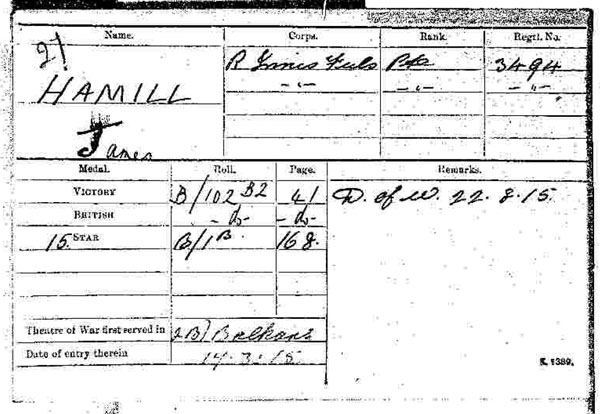 Name. Corps. Rank. Regtl. No.
21 R Innis Fus Pte 3494
HAMILL -"- -"- -"-
James
Medal. Roll. Page. Remarks.
VICTORY B/102 B2 41 D. of W. 22.8.15.
BRITISH -do- -do-
15 STAR B/1B. 168.
Theatre of War first served in (2B) Balkans
Date of entry therein 14.3.15.
K. 1380.